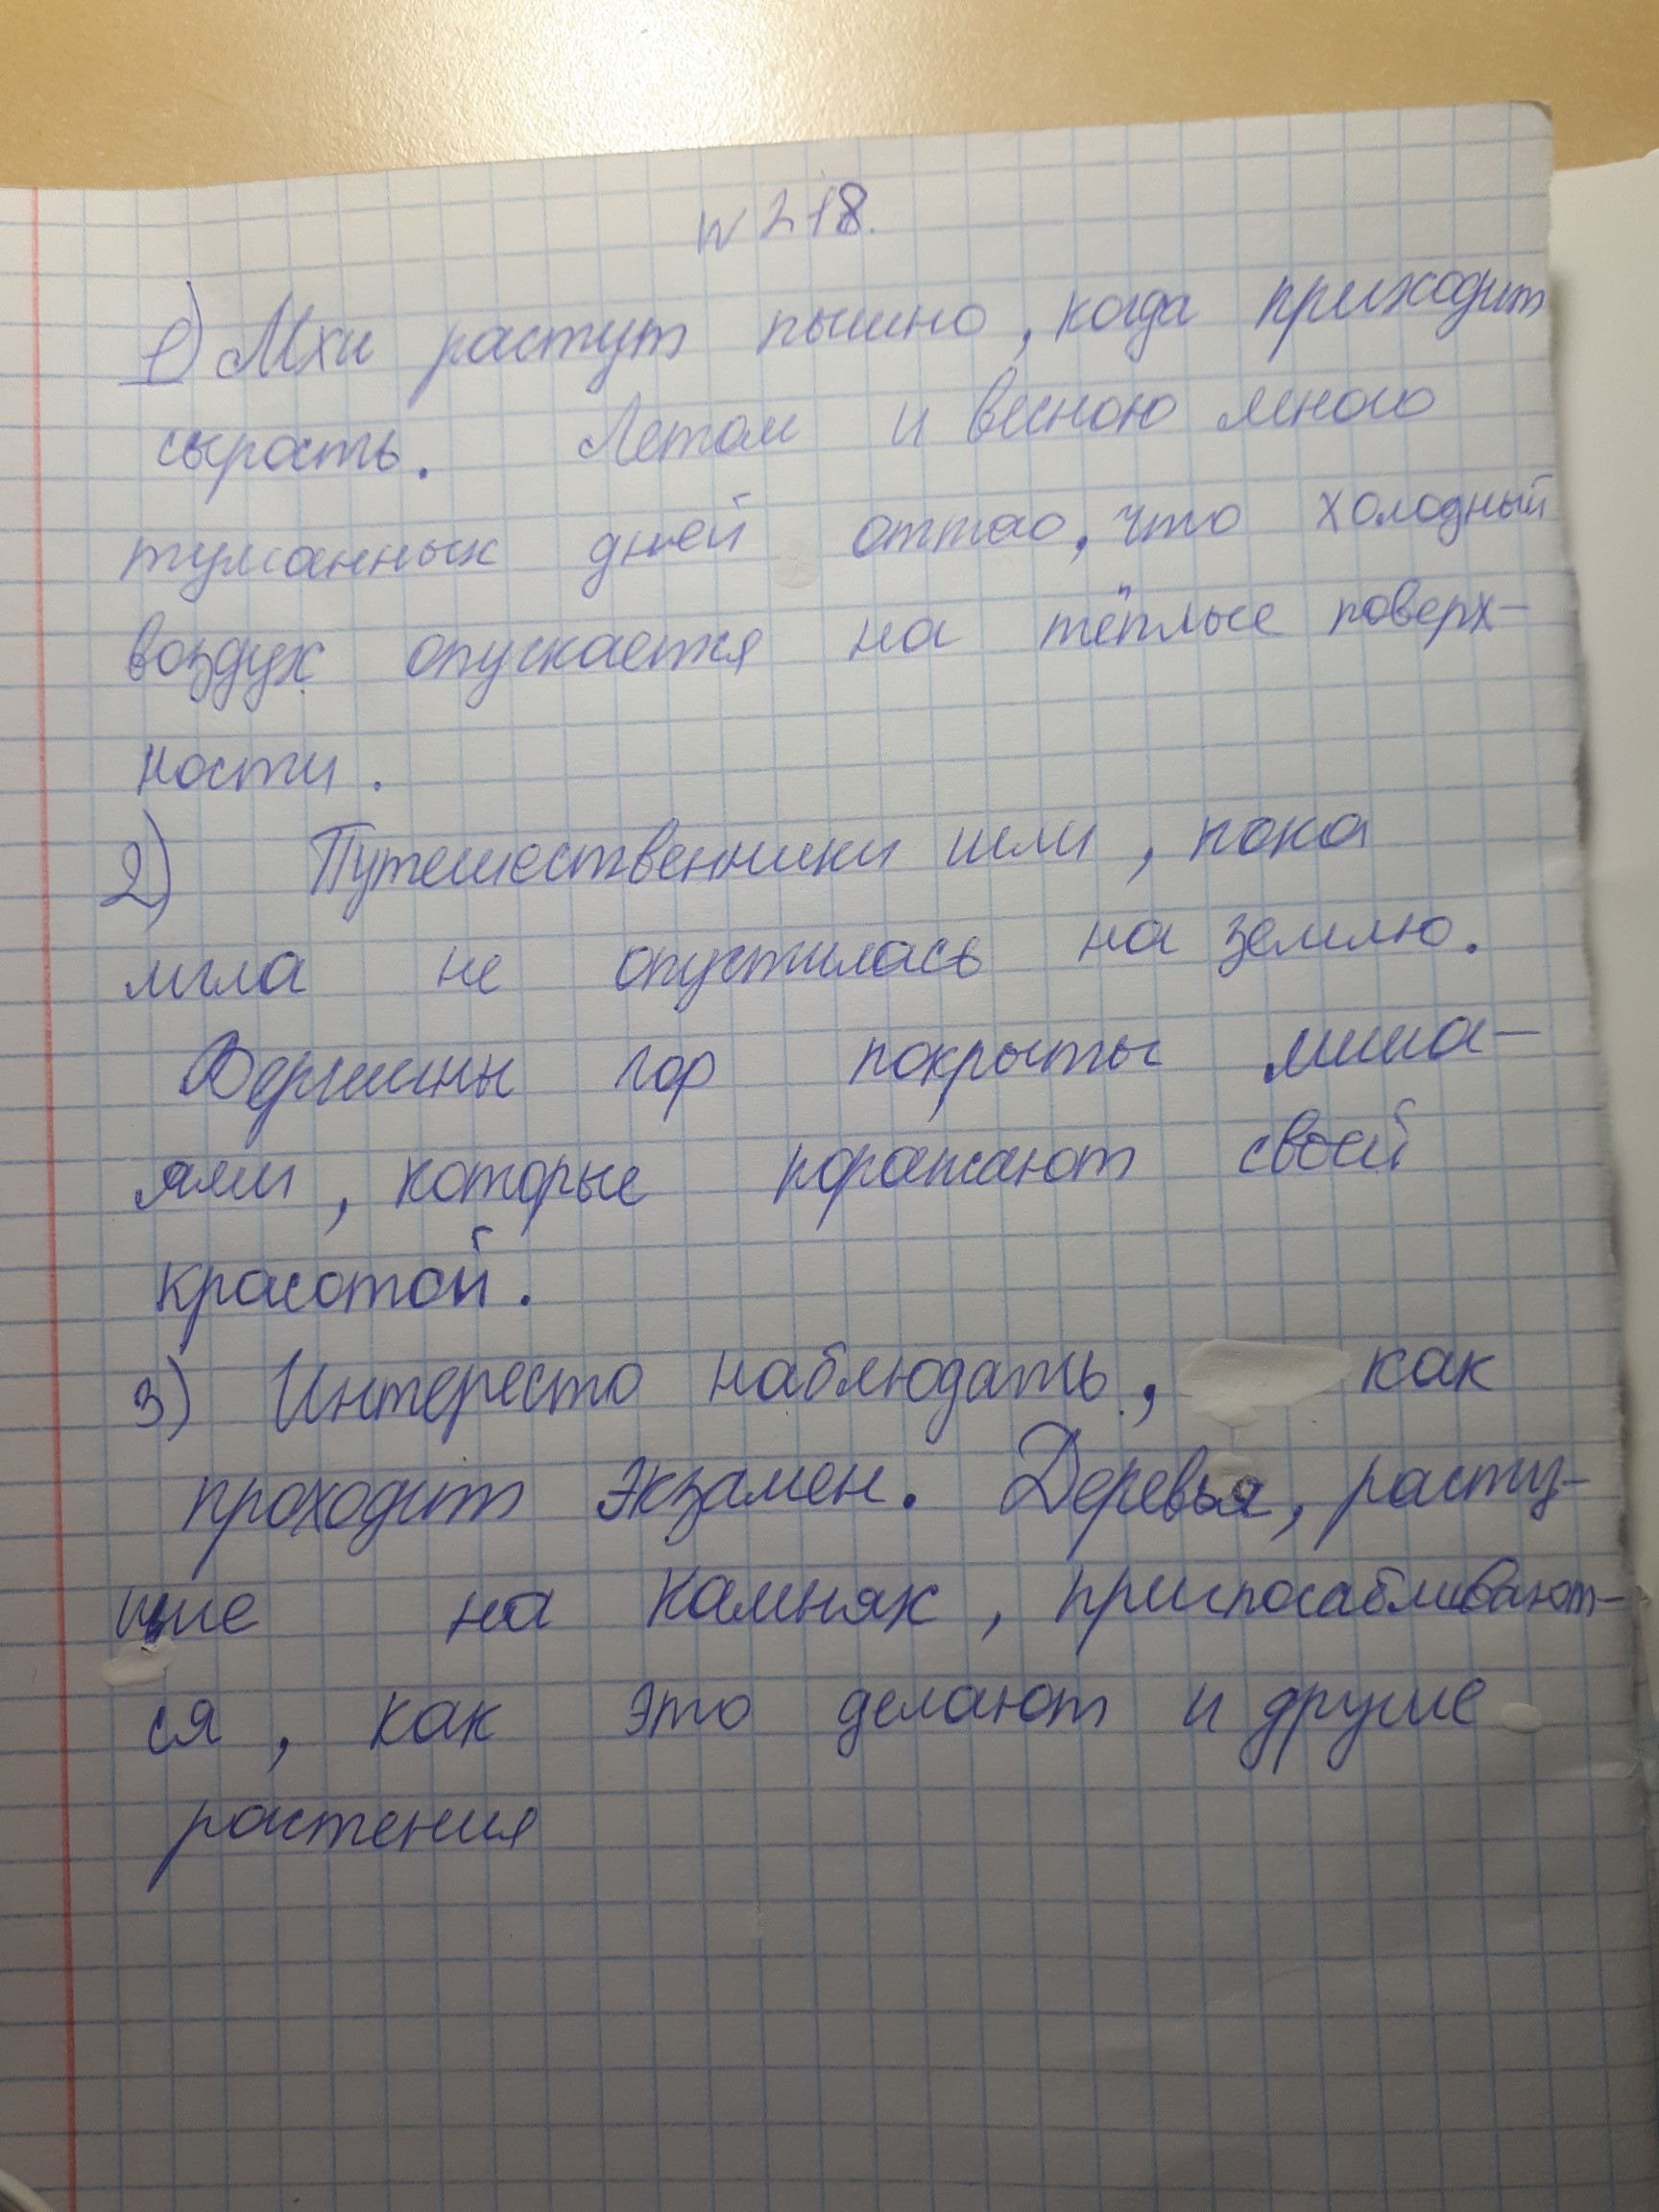 № 218.
1) Мхи растут пышно, когда приходит
сырость. Летом и весною много
туманных дней оттого, что холодный
воздух опускается на тёплые поверх-
ности.
2) Путешественники шли, пока
мгла не опустилась на землю.
Вершины гор покрыты лиша-
ями, которые поражают своей
красотой.
3) Интересто наблюдать, как
проходит экзамен. Деревья, расту-
щие на камнях, приспосабливают-
ся, как это делают и другие
растения